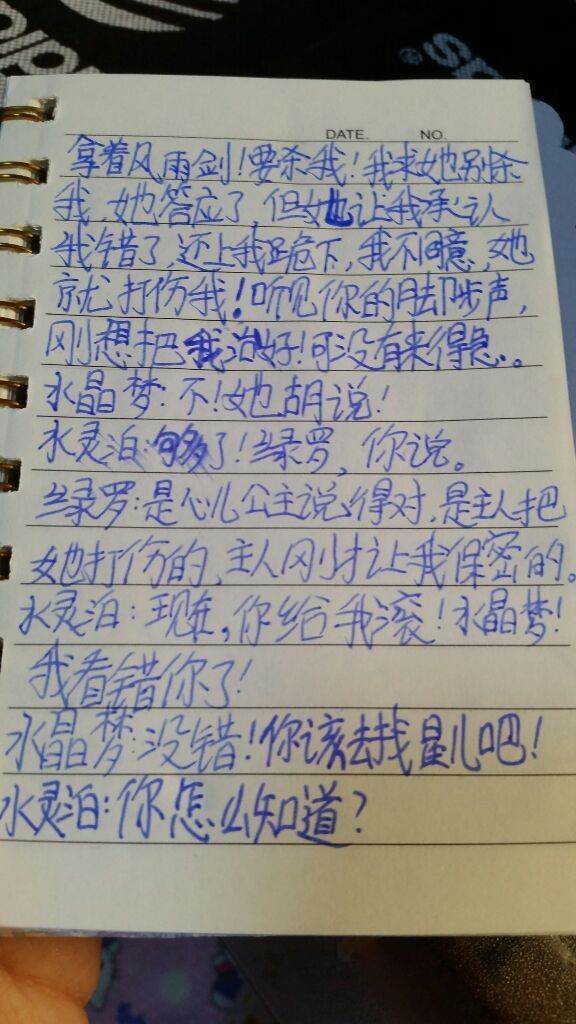 DATE. NO.
拿着风雨剑!要杀我!我求她别杀
我,她答应了,但她让我承认
我错了,还上我跪下,我不同意,她
就打伤我!听见你的脚步声,
刚想把我治好!可没有来得急。
水晶梦:不!她胡说!
水灵泊:够了!绿罗,你说。
绿罗:是心儿公主说得对,是主人把
她打伤的,主人刚才让我保密的。
水灵泊:现在,你给我滚!水晶梦!
我看错你了!
水晶梦:没错!你该去找星儿吧!
水灵泊:你怎么知道?